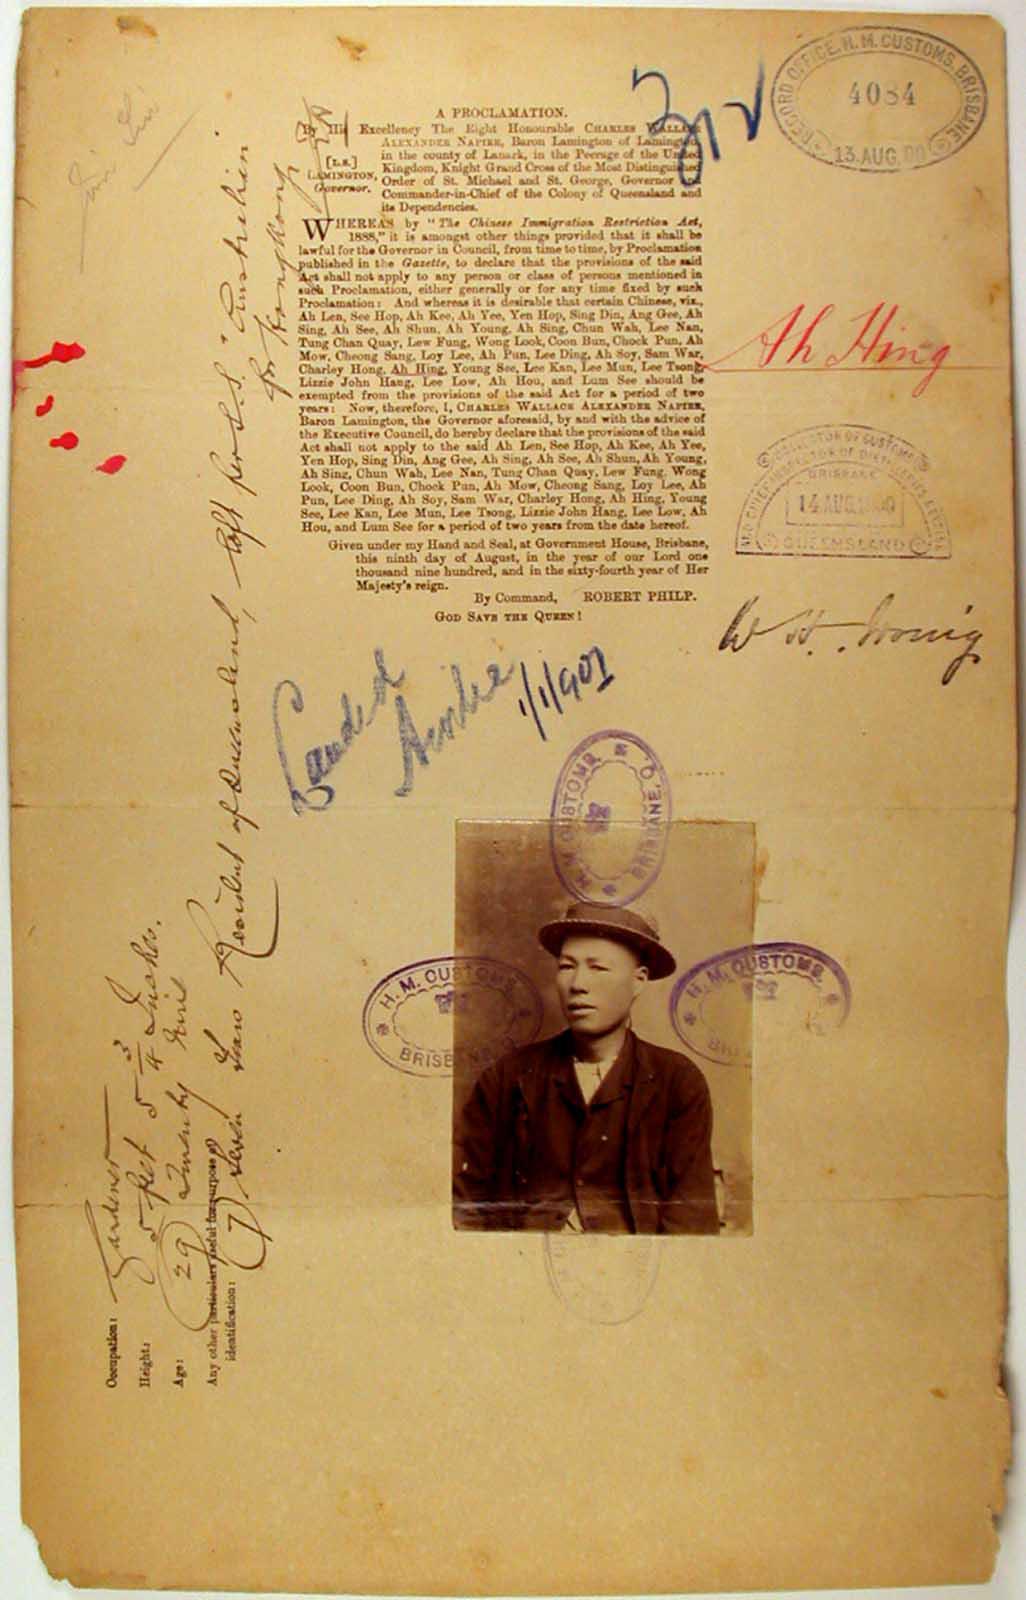 RECORD OFFICE, H. M. CUSTOMS, BRISBANE
4084
13. AUG. 00
A PROCLAMATION.
By His Excellency The Right Honourable CHARLES WALLACE
ALEXANDER NAPIER, Baron Lamington of Lamington,
in the county of Lanark, in the Peerage of the United
[L.S.]
Kingdom, Knight Grand Cross of the Most Distinguished
LAMINGTON,
Order of St. Michael and St. George, Governor and
Governor.
Commander-in-Chief of the Colony of Queensland and
its Dependencies.
WHEREAS by "The Chinese Immigration Restriction Act,
1888," it is amongst other things provided that it shall be
lawful for the Governor in Council, from time to time, by Proclamation
published in the Gazette, to declare that the provisions of the said
Act shall not apply to any person or class of persons mentioned in
such Proclamation, either generally or for any time fixed by such
Proclamation: And whereas it is desirable that certain Chinese, viz.,
Ah Len, See Hop, Ah Kee, Ah Yee, Yen Hop, Sing Din, Ang Gee, Ah
Sing, Ah See, Ah Shun, Ah Young, Ah Sing, Chun Wah, Lee Nan,
Tung Chan Quay, Lew Fung, Wong Look, Coon Bun, Chock Pun, Ah
Mow, Cheong Sang, Loy Lee, Ah Pun, Lee Ding, Ah Soy, Sam War,
Charley Hong, Ah Hing, Young See, Lee Kan, Lee Mun, Lee Tsong,
Lizzie John Hang, Lee Low, Ah Hou, and Lum See should be
exempted from the provisions of the said Act for a period of two
years: Now, therefore, I, CHARLES WALLACE ALEXANDER NAPIER,
Baron Lamington, the Governor aforesaid, by and with the advice of
the Executive Council, do hereby declare that the provisions of the said
Act shall not apply to the said Ah Len, See Hop, Ah Kee, Ah Yee,
Yen Hop, Sing Din, Ang Gee, Ah Sing, Ah See, Ah Shun, Ah Young,
Ah Sing, Chun Wah, Lee Nan, Tung Chan Quay, Lew Fung, Wong
Look, Coon Bun, Chock Pun, Ah Mow, Cheong Sang, Loy Lee, Ah
Pun, Lee Ding, Ah Soy, Sam War, Charley Hong, Ah Hing, Young
See, Lee Kan, Lee Mun, Lee Tsong, Lizzie John Hang, Lee Low, Ah
Hou, and Lum See for a period of two years from the date hereof.
Given under my Hand and Seal, at Government House, Brisbane,
this ninth day of August, in the year of our Lord one
thousand nine hundred, and in the sixty-fourth year of Her
Majesty's reign.
By Command, ROBERT PHILP.
GOD SAVE THE QUEEN!
Ah Hing
COLLECTOR OF CUSTOMS
AND CHIEF INSPECTOR OF DISTILLERIES & EXCISE
BRISBANE
14 AUG. 1900
QUEENSLAND
W H. Irving
1/1/1901
H. M. CUSTOMS
BRISBANE, Q.
H. M. CUSTOMS
BRISBANE
H. M. CUSTOMS
Occupation: Gardener
Height: 5 feet 5 3/4 Inches.
Age: 29 Twenty Nine
Any other particulars useful for purpose of
identification:
7 Seven Years Resident of Queensland, left per S.S. "Australian"
for Hongkong